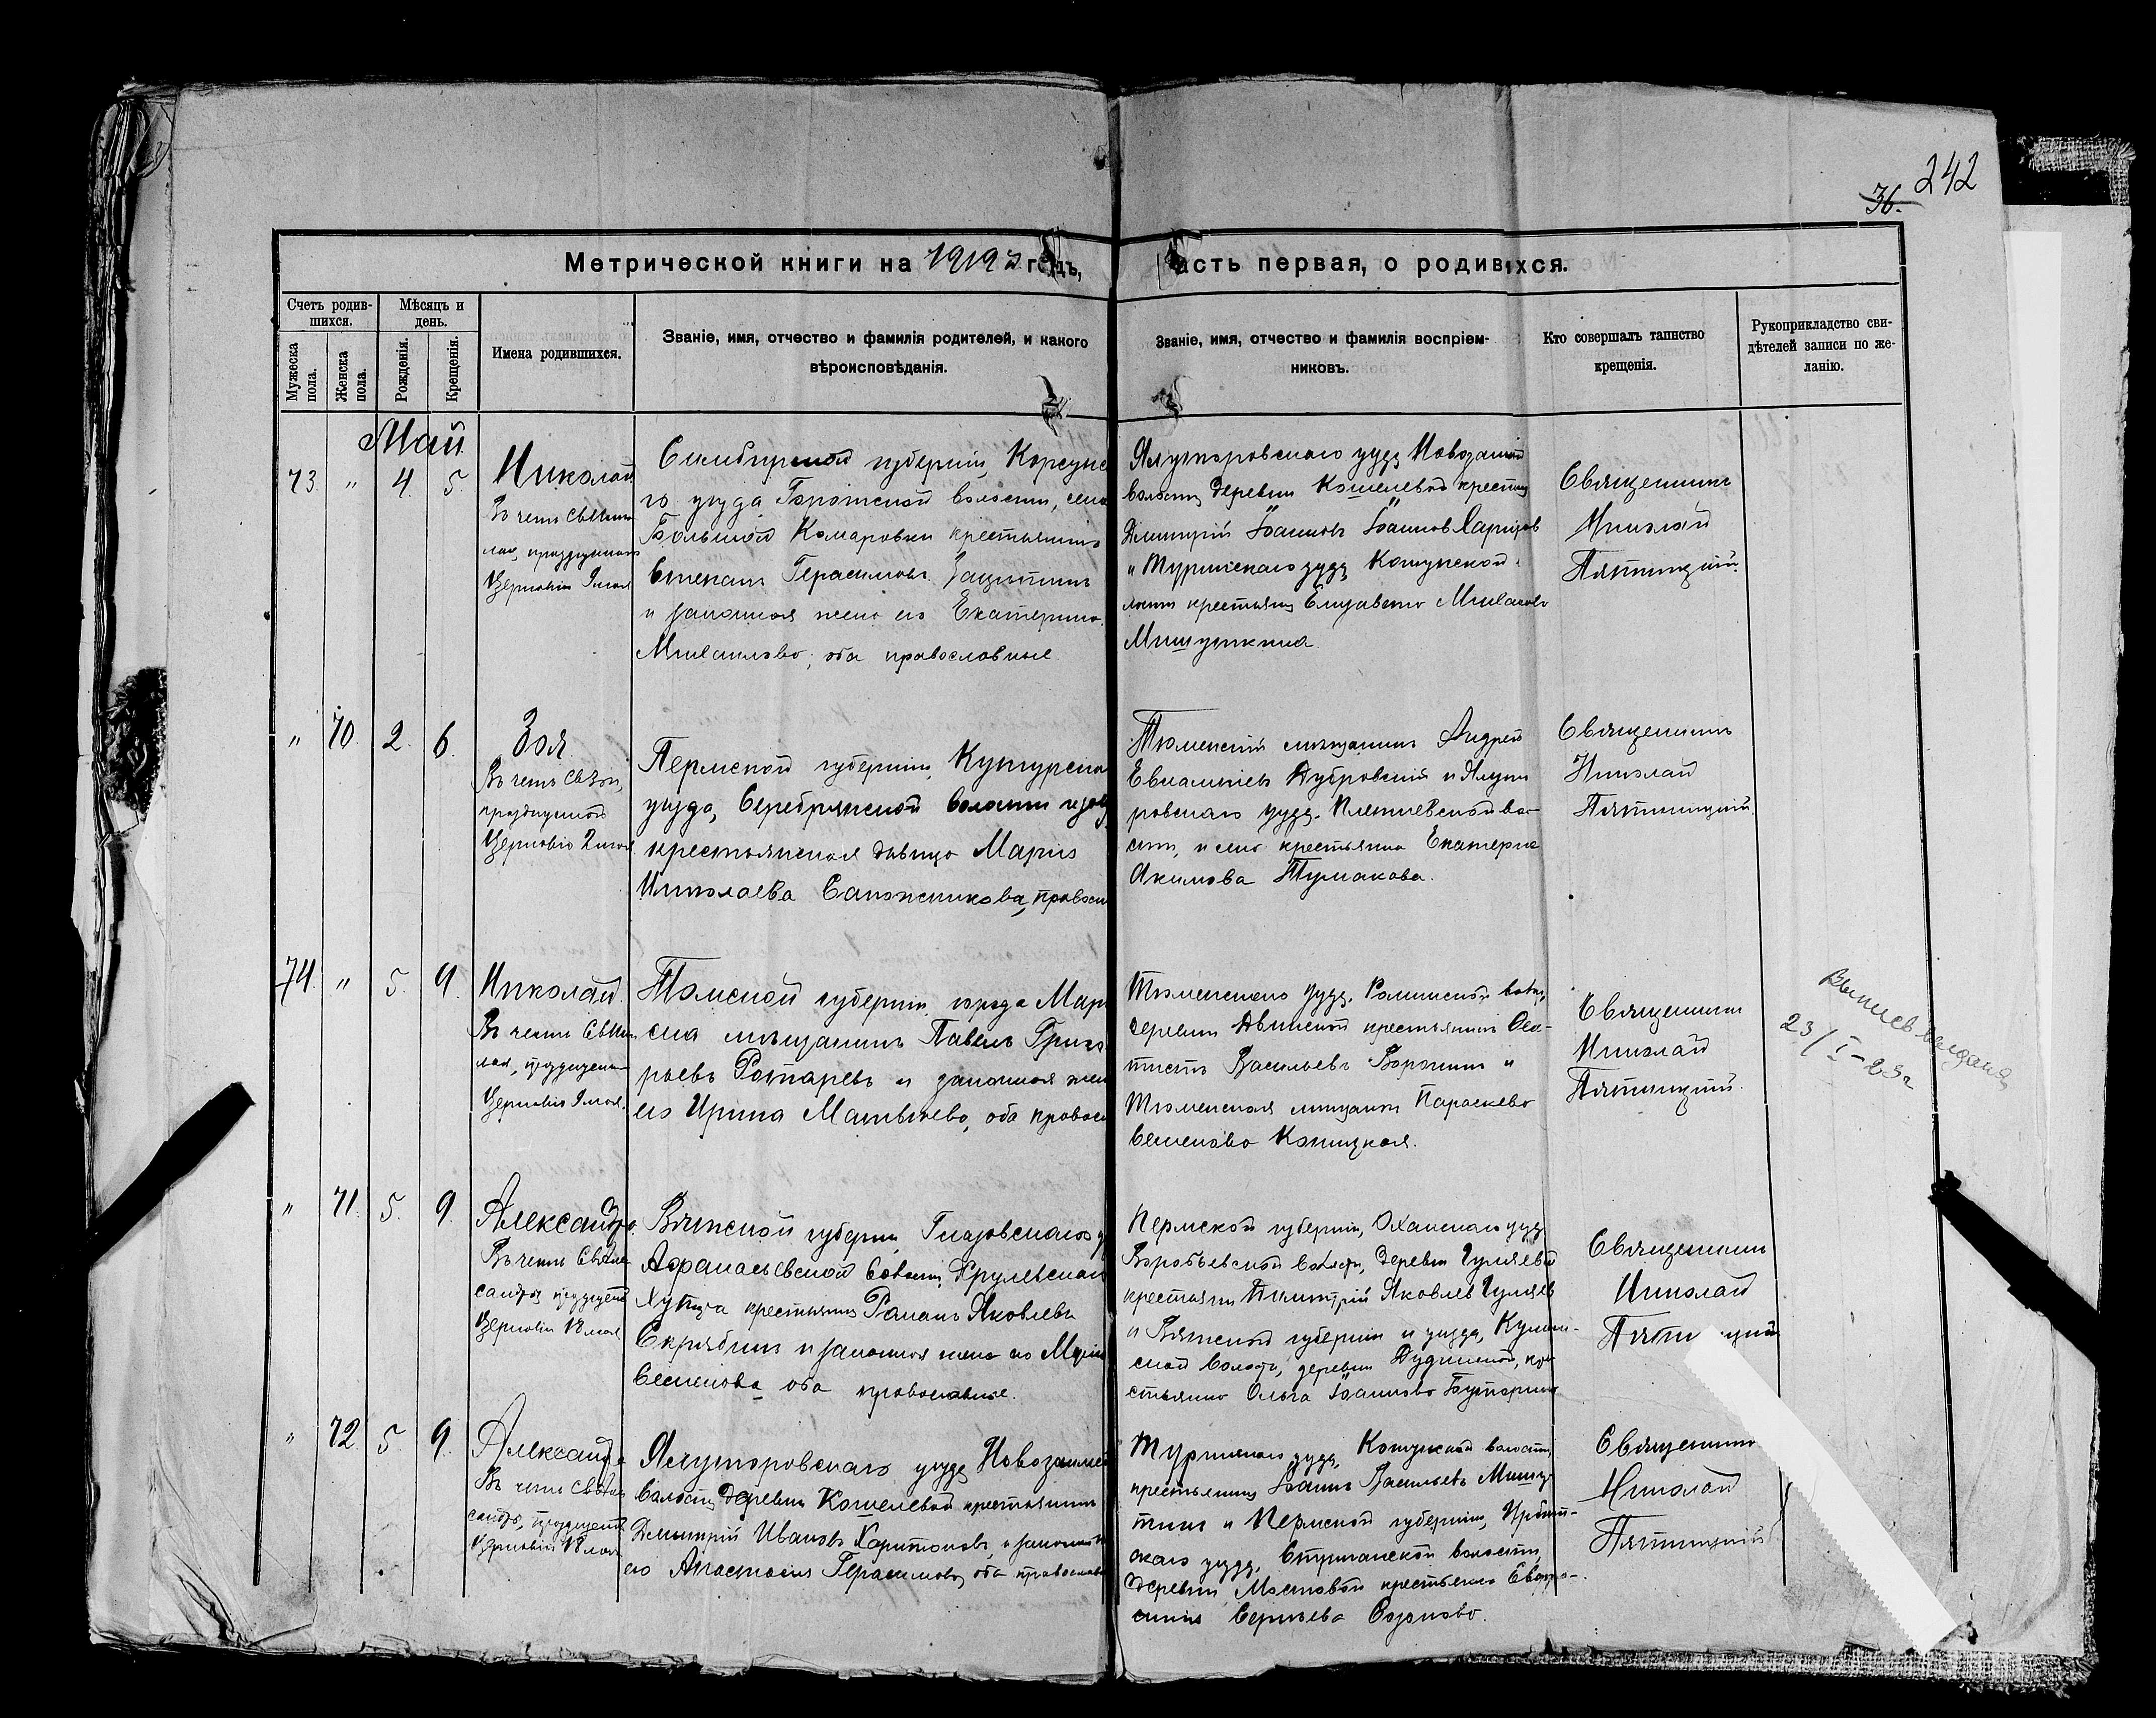 242
36.
Метрической книги на 1919 годъ,
асть первая, о родившихся.
Счетъ родив-
шихся.
Мѣсяцъ и
день.
Мужеска
пола.
Женска
пола.
Рожденія.
Крещенія.
Имена родившихся.
Званіе, имя, отчество и фамилія родителей, и какого
вѣроисповѣданія.
Званіе, имя, отчество и фамилія воспріем-
никовъ.
Кто совершалъ таинство
крещенія.
Рукоприкладство сви-
дѣтелей записи по же-
ланію.
Май
73. " 4. 5.
Николай
Въ честь Св. Нико
лая, празднуемаго
Церковію 9 мая
Симбирской губерніи, Корсунс
го уѣзда Горотской волости, села
Большой Комаровки крестьянинъ
Степанъ Герасимовъ Защитинъ
и законная жена его Екатерина
Михаилова, оба православные.
Ялуторовскаго уѣзд. Новозаимк
волости деревни Кошелевой крестьян
Дмитрій Іоанновъ Харитонов
и Туринскаго уѣзд. Кошукской
лости крестьянк Елизавета Михаилова
Мишуткина.
Священникъ
Николай
Пятницкій.
" 70. 2. 6.
Зоя
Въ честь Св. Зои,
празднуемой
Церковію 2 мая
Пермской губерніи, Кунгурска
уѣзда, Серебрянской волости и села
крестьянская дѣвица Марія
Николаева Сапожникова, правосл
Тюменскій мѣщанинъ Андрей
Евлампіевъ Дубровскій и Ялуто
ровскаго уѣзд. Плетневской во-
сти, и села крестьянка Екатерина
Акимова Тумакова.
Священникъ
Николай
Пятницкій.
74. " 5. 9.
Николай.
Въ честь Св. Нико
лая, празднуема
Церковію 9 мая.
Томской губерніи, города Мари
ска мѣщанинъ Павелъ Григо
рьевъ Ротаревъ и законная жен
его Ирина Матвѣева, оба правосл
Тюменскаго уѣзд. волос.
деревни Двинской крестьянинъ
Васильевъ Воронинъ и
Тюменская мѣщанка Параскева
Семенова Коницкая.
Священникъ
Николай
Пятницкій.
Выпись выдана
23/I-23г
" 71. 5. 9.
Александра.
Въ честь Св. Алек
сандры празднуем
Церковію 18 мая
Вятской губерніи, Глазовскаго у
Афанасьевской волости,
крестьянинъ Романъ Яковлевъ
Скрябинъ и законная жена его Марія
Семенова оба православные.
Пермской губерніи, Оханскаго уѣзд
Воробьевской волости, деревни Гуляевой
крестьянин Димитрій Яковлев Гуляев
и Вятской губерніи и уѣзда,
ской волости, деревни Дудинской, кре
стьянка Ольга Іоаннова Бутарина
Священникъ
Николай
" 72. 5. 9.
Александра
Въ честь Св. Алек
сандры, празднуем
Церковію 18 мая
Ялуторовскаго уѣзда Новозаимс
волости деревни Кошелевой крестьянинъ
Дмитрій Ивановъ Харитоновъ, и законная ж
его Анастасія Герасимова, оба православн
Туринскаго уѣзд. Кошукской волости,
крестьянинъ Іоаннъ Васильевъ Мишу-
тинъ и Пермской губерніи, Ирбит-
скаго уѣзд. Стриганской волости,
деревни Мостовой крестьянка Евфро-
синія Сергѣева
Священникъ
Николай
Пятницкій